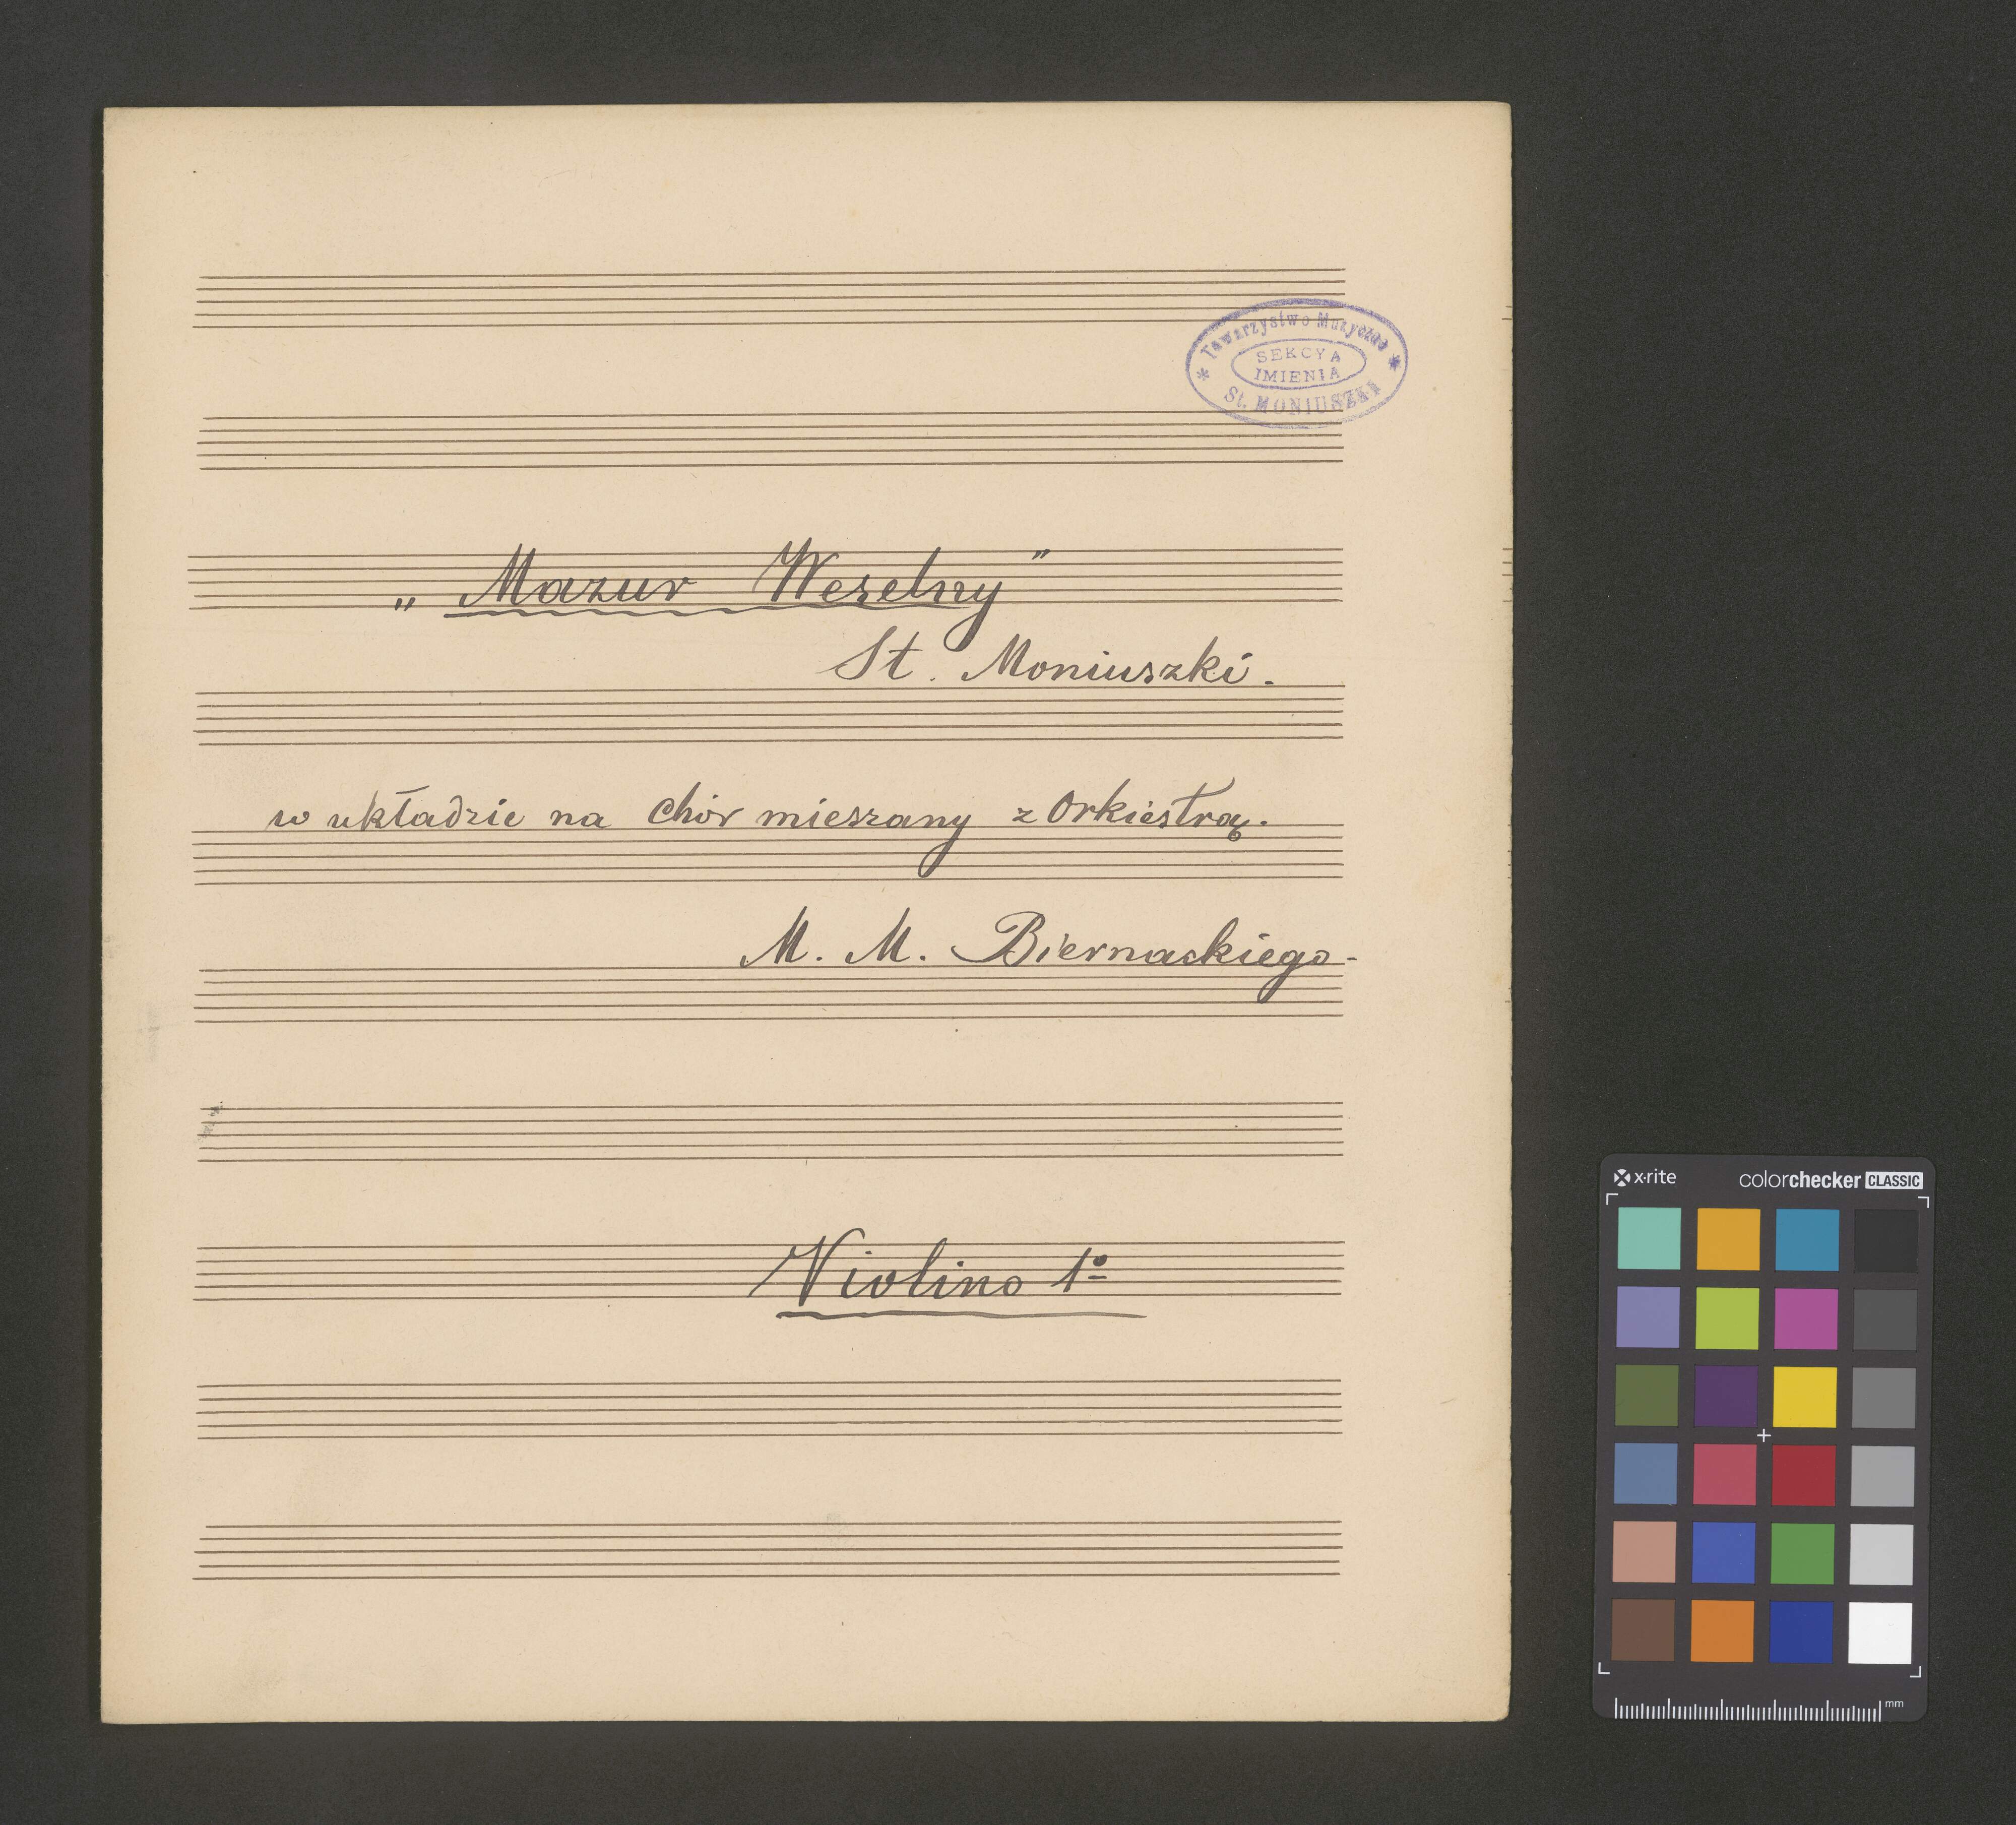 Towarzystwo Muzyczne
SEKCYA
IMIENIA
St. MONIUSZKI
„Mazur Weselny”
St. Moniuszki.
w układzie na Chór mieszany z Orkiestrą.
M. M. Biernackiego.
Violino 1º
x·rite colorchecker CLASSIC
mm